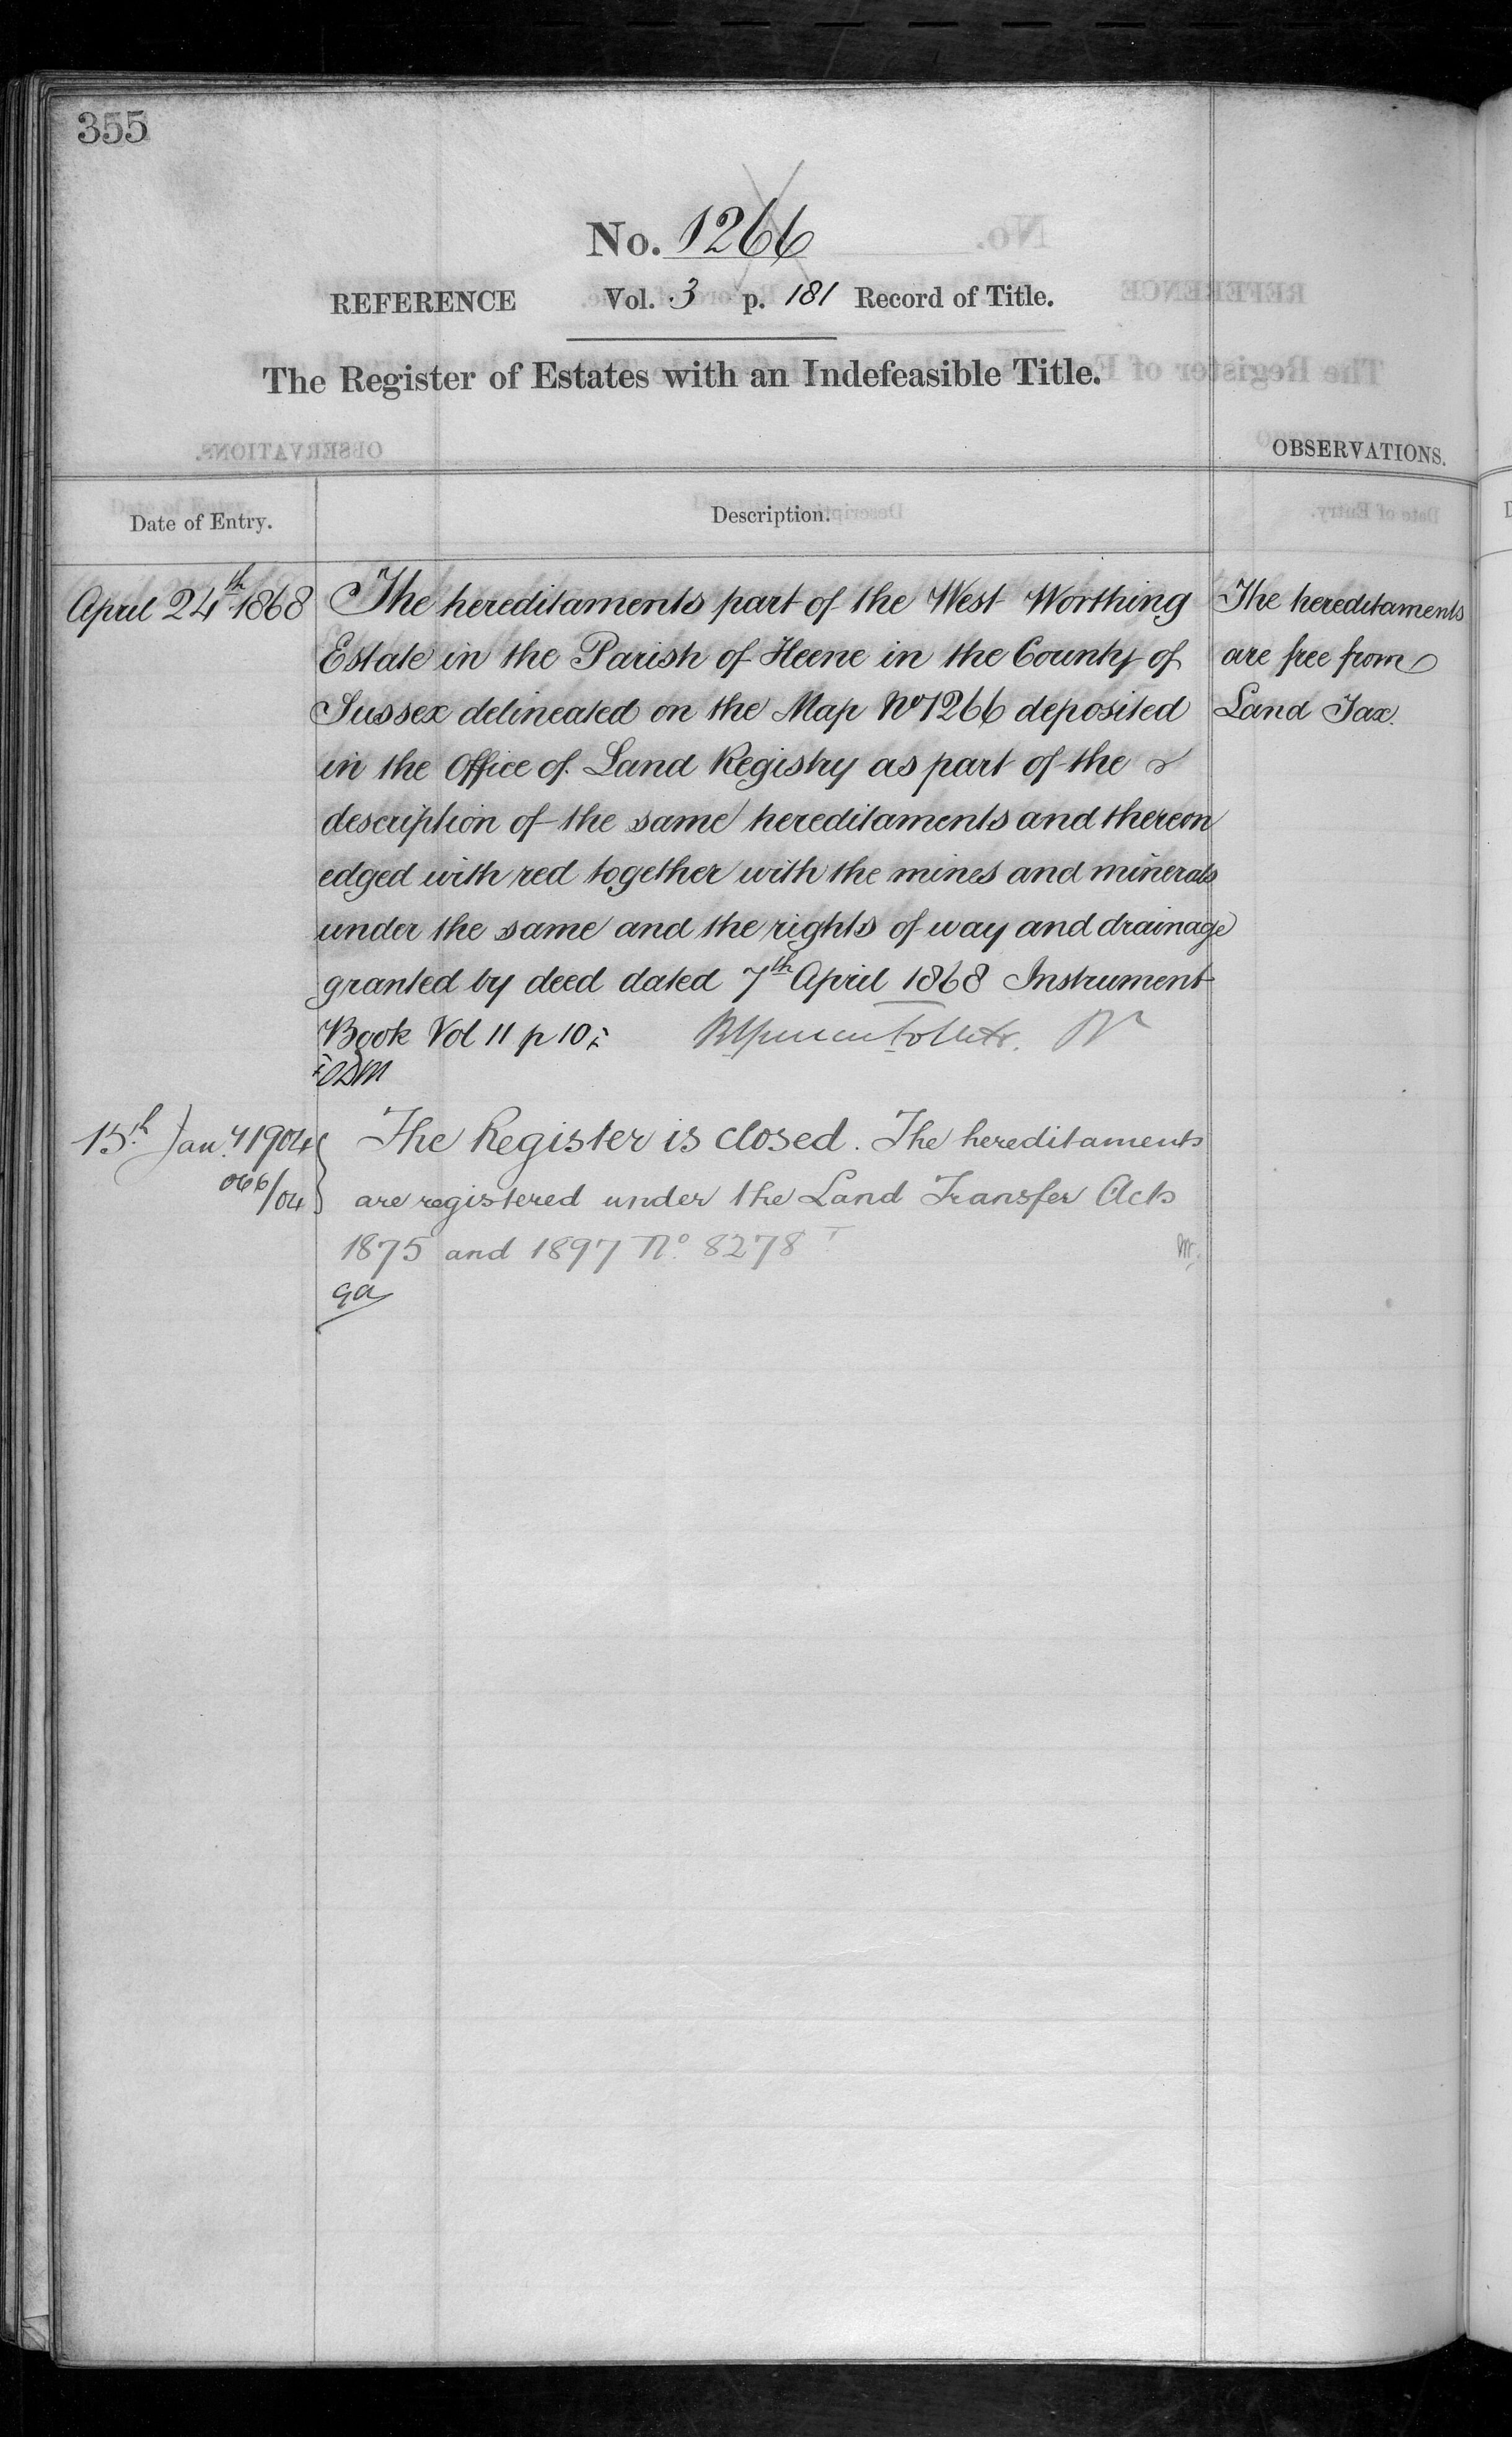 355
No. 1266
REFERENCE Vol. 3 p. 181 Record of Title.
The Register of Estates with an Indefeasible Title.
OBSERVATIONS.
Date of Entry. Description.
April 24th 1868 The hereditaments part of the West Worthing
Estate in the Parish of Heene in the County of
Sussex delineated on the Map No 1266 deposited
in the Office of Land Registry as part of the
description of the same hereditaments and thereon
edged with red together with the mines and minerals
under the same and the rights of way and drainage
granted by deed dated 7th April 1868 Instrument
Book Vol 11 p 10
The hereditaments
are free from
Land Tax.
15th Jany 1904 The Register is closed. The hereditaments
066/04 are registered under the Land Transfer Acts
1875 and 1897 No. 8278